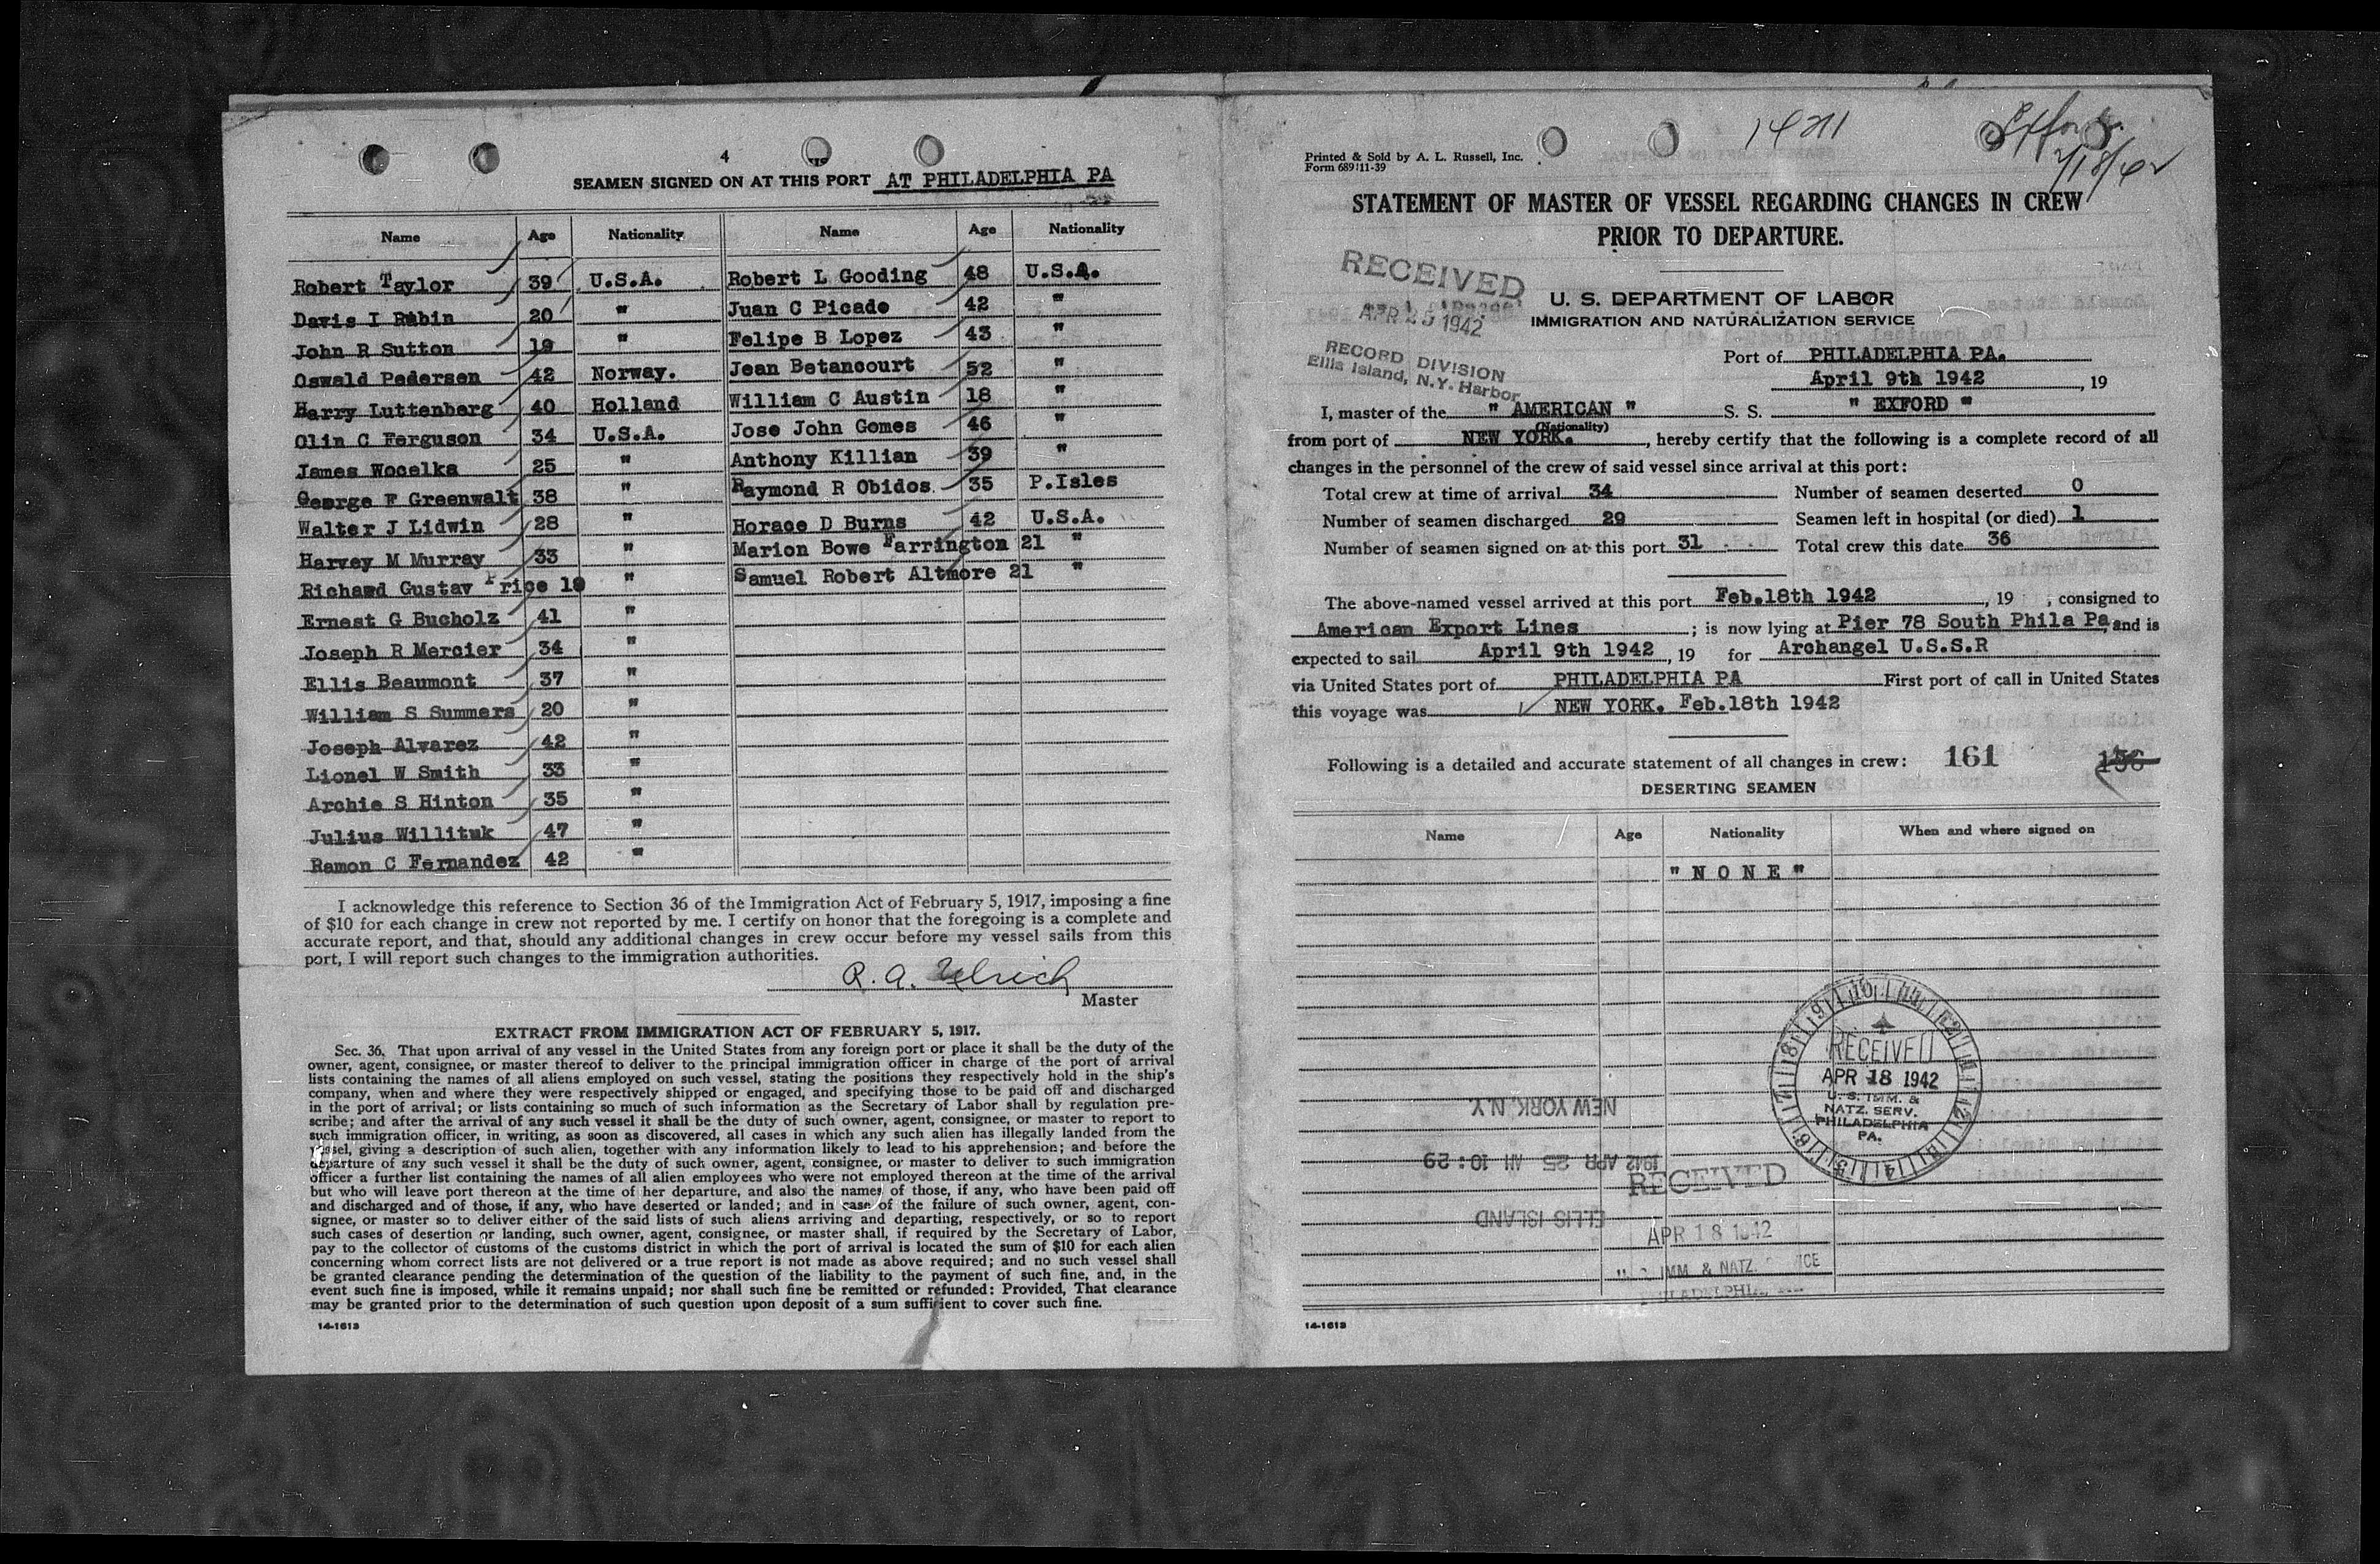 4
SEAMEN SIGNED ON AT THIS PORT AT PHILADELPHIA PA
Name Age Nationality Name Age Nationality
Robert Taylor 39 U.S.A. Robert L Gooding 48 U.S.A.
Davis I Rubin 20 " Juan C Picado 42 "
John R Sutton 19 " Felipe B Lopez 43 "
Oswald Pedersen 42 Norway. Jean Betancourt 52 "
Harry Luttenberg 40 Holland William C Austin 18 "
Olin C Ferguson 34 U.S.A. Jose John Gomes 46 "
James Wocelka 25 " Anthony Killian 39 "
George F Greenwalt 38 " Raymond R Obidos. 35 P.Isles
Walter J Lidwin 28 " Horace D Burns 42 U.S.A.
Harvey M Murray 33 " Marion Bowe Farrington 21 "
Richard Gustav Price 19 " Samuel Robert Altmore 21 "
Ernest G Bucholz 41 "
Joseph R Mercier 34 "
Ellis Beaumont 37 "
William S Summers 20 "
Joseph Alvarez 42 "
Lionel W Smith 33 "
Archie S Hinton 35 "
Julius Willituk 47 "
Ramon C Fernandez 42 "
I acknowledge this reference to Section 36 of the Immigration Act of February 5, 1917, imposing a fine
of $10 for each change in crew not reported by me. I certify on honor that the foregoing is a complete and
accurate report, and that, should any additional changes in crew occur before my vessel sails from this
port, I will report such changes to the immigration authorities.
R. A. Ulrich
Master
EXTRACT FROM IMMIGRATION ACT OF FEBRUARY 5, 1917.
Sec. 36. That upon arrival of any vessel in the United States from any foreign port or place it shall be the duty of the
owner, agent, consignee, or master thereof to deliver to the principal immigration officer in charge of the port of arrival
lists containing the names of all aliens employed on such vessel, stating the positions they respectively hold in the ship's
company, when and where they were respectively shipped or engaged, and specifying those to be paid off and discharged
in the port of arrival; or lists containing so much of such information as the Secretary of Labor shall by regulation pre-
scribe; and after the arrival of any such vessel it shall be the duty of such owner, agent, consignee, or master to report to
such immigration officer, in writing, as soon as discovered, all cases in which any such alien has illegally landed from the
vessel, giving a description of such alien, together with any information likely to lead to his apprehension; and before the
departure of any such vessel it shall be the duty of such owner, agent, consignee, or master to deliver to such immigration
officer a further list containing the names of all alien employees who were not employed thereon at the time of the arrival
but who will leave port thereon at the time of her departure, and also the names of those, if any, who have been paid off
and discharged and of those, if any, who have deserted or landed; and in case of the failure of such owner, agent, con-
signee, or master so to deliver either of the said lists of such aliens arriving and departing, respectively, or so to report
such cases of desertion or landing, such owner, agent, consignee, or master shall, if required by the Secretary of Labor,
pay to the collector of customs of the customs district in which the port of arrival is located the sum of $10 for each alien
concerning whom correct lists are not delivered or a true report is not made as above required; and no such vessel shall
be granted clearance pending the determination of the question of the liability to the payment of such fine, and, in the
event such fine is imposed, while it remains unpaid; nor shall such fine be remitted or refunded: Provided, That clearance
may be granted prior to the determination of such question upon deposit of a sum sufficient to cover such fine.
14-1613
Printed & Sold by A. L. Russell, Inc.
Form 689 11-39
2/18/42
STATEMENT OF MASTER OF VESSEL REGARDING CHANGES IN CREW
PRIOR TO DEPARTURE.
RECEIVED
APR 25 1942
RECORD DIVISION
Ellis Island, N.Y. Harbor
U. S. DEPARTMENT OF LABOR
IMMIGRATION AND NATURALIZATION SERVICE
Port of PHILADELPHIA PA.
April 9th 1942, 19
I, master of the " AMERICAN " S. S. " EXFORD "
(Nationality)
from port of NEW YORK., hereby certify that the following is a complete record of all
changes in the personnel of the crew of said vessel since arrival at this port:
Total crew at time of arrival 34 Number of seamen deserted 0
Number of seamen discharged 29 Seamen left in hospital (or died) 1
Number of seamen signed on at this port 31 Total crew this date 36
The above-named vessel arrived at this port Feb.18th 1942, 19 , consigned to
American Export Lines ; is now lying at Pier 78 South Phila Pa, and is
expected to sail April 9th 1942, 19 for Archangel U.S.S.R
via United States port of PHILADELPHIA PA First port of call in United States
this voyage was NEW YORK. Feb.18th 1942
Following is a detailed and accurate statement of all changes in crew: 161 156
DESERTING SEAMEN
Name Age Nationality When and where signed on
" N O N E "
RECEIVED
APR 18 1942
U. S. IMM. &
NATZ. SERV.
PHILADELPHIA
PA.
NEW YORK, N.Y.
1942 APR 25 AM 10:29
ELLIS ISLAND
RECEIVED
APR 18 1942
IMM. & NATZ.
14-1613